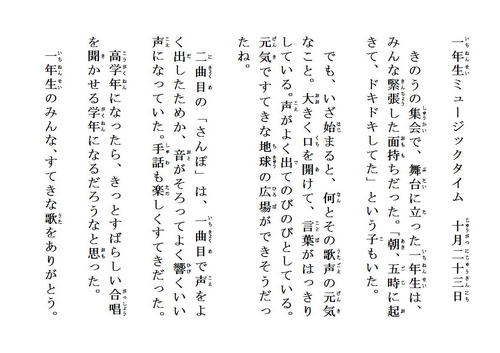 一年生ミュージックタイム　十月二十三日
きのうの集会で、舞台に立った一年生は、
みんな緊張した面持ちだった。「朝、五時に起
きて、ドキドキしてた」という子もいた。
でも、いざ始まると、何とその歌声の元気
なこと。大きく口を開けて、言葉がはっきり
している。声がよく出てのびのびとしている。
元気ですてきな地球の広場ができそうだっ
たね。
二曲目の「さんぽ」は、一曲目で声をよ
く出したためか、音がそろってよく響くいい
声になっていた。手話も楽しくすてきだった。
高学年になったら、きっとすばらしい合唱
を聞かせる学年になるだろうなと思った。
一年生のみんな、すてきな歌をありがとう。